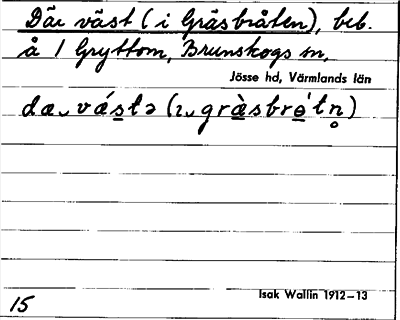 Där väst (i Gräsbråten), beb.
å 1 Gryttom, Brunskogs sn,
Jösse hd, Värmlands län
dæ͜ vǽs̠tə (ɩ͜ græ̠̀sbrɵ̠́tn̥)
Isak Wallin 1912–13
15